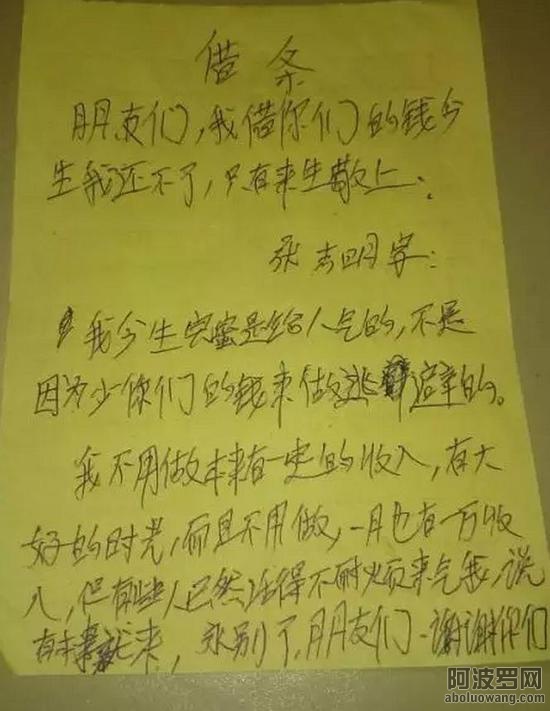 借条
朋友们,我借你们的钱今
生我还不了,只有来生敬上:
张志明字:
我今生完蛋是给人气的,不是
因为少你们的钱来做逃避的。
我不用做本来有一定的收入,有大
好的时光,而且不用做,一月也有一万收
入,但有些人已然活得不耐烦来气我,说
有本事就来,永别了,朋友们-谢谢你们
阿波罗网
aboluowang.com